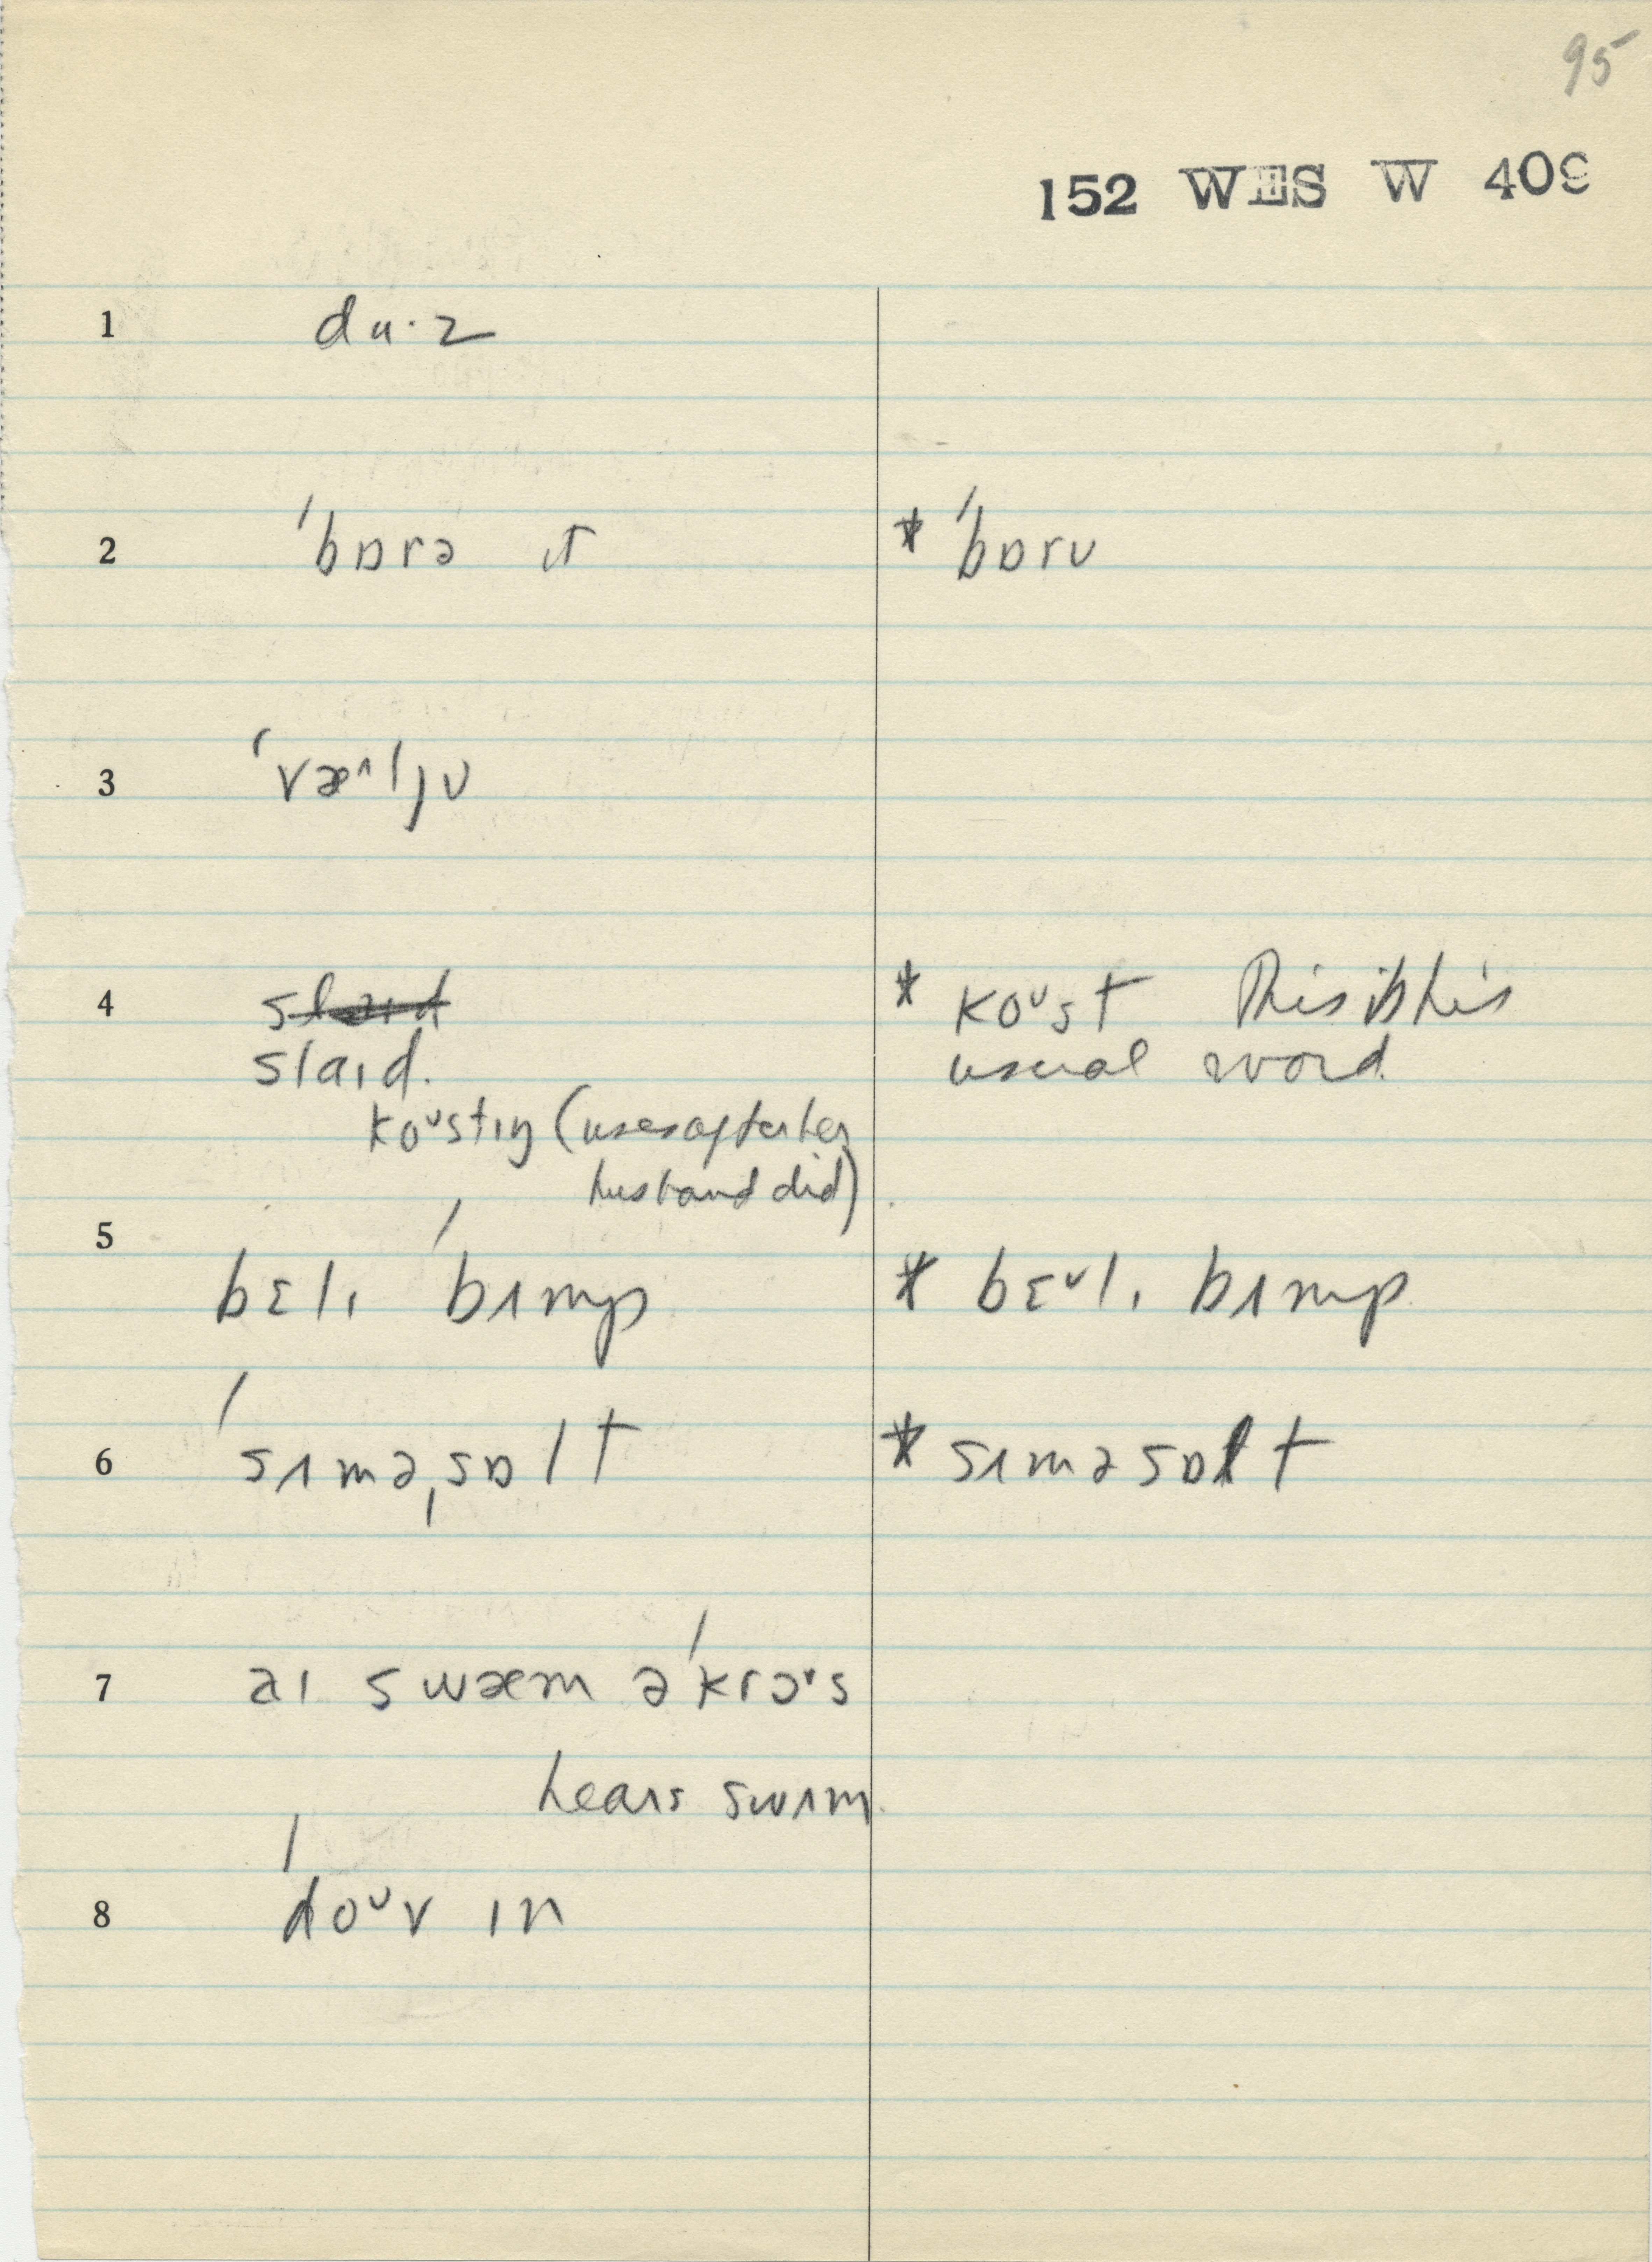 95
152 WES W 409
1 du·z
2 ˈbɒrə ɪt * ˈbɒrʊ
3 ˈvæ^ljʊ
4 slaɪd * koᶷst This is his
slaɪd. usual word
koᶷstɪŋ (uses after her
husband did)
5
bɛlɪ ˈbʌmp * bɛᵛlɪ bʌmp
6 ˈsʌməˌsɒlt * sʌməsɒlt
7 aɪ swæm əˈkrɔᵛs
hears swʌm
8 ˈdoᶷv ɪn